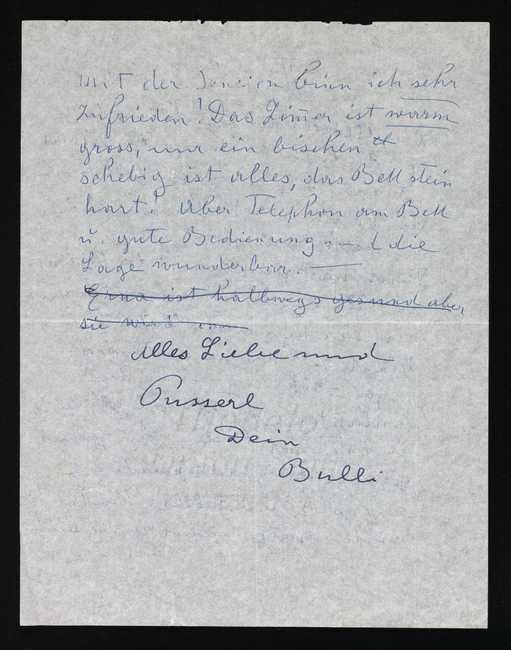 mit der Pension binn ich sehr
zufrieden! Das Zim̄er ist warm
gross, nur ein bischen
schebig ist alles, das Bett stein
hart! Aber Telephon am Bett
u. gute Bedienung und die
Lage wunderbar. —
Erna ist halbwegs gesund aber
sie wird
Alles Liebe und
Pusserl
Dein
Bulli